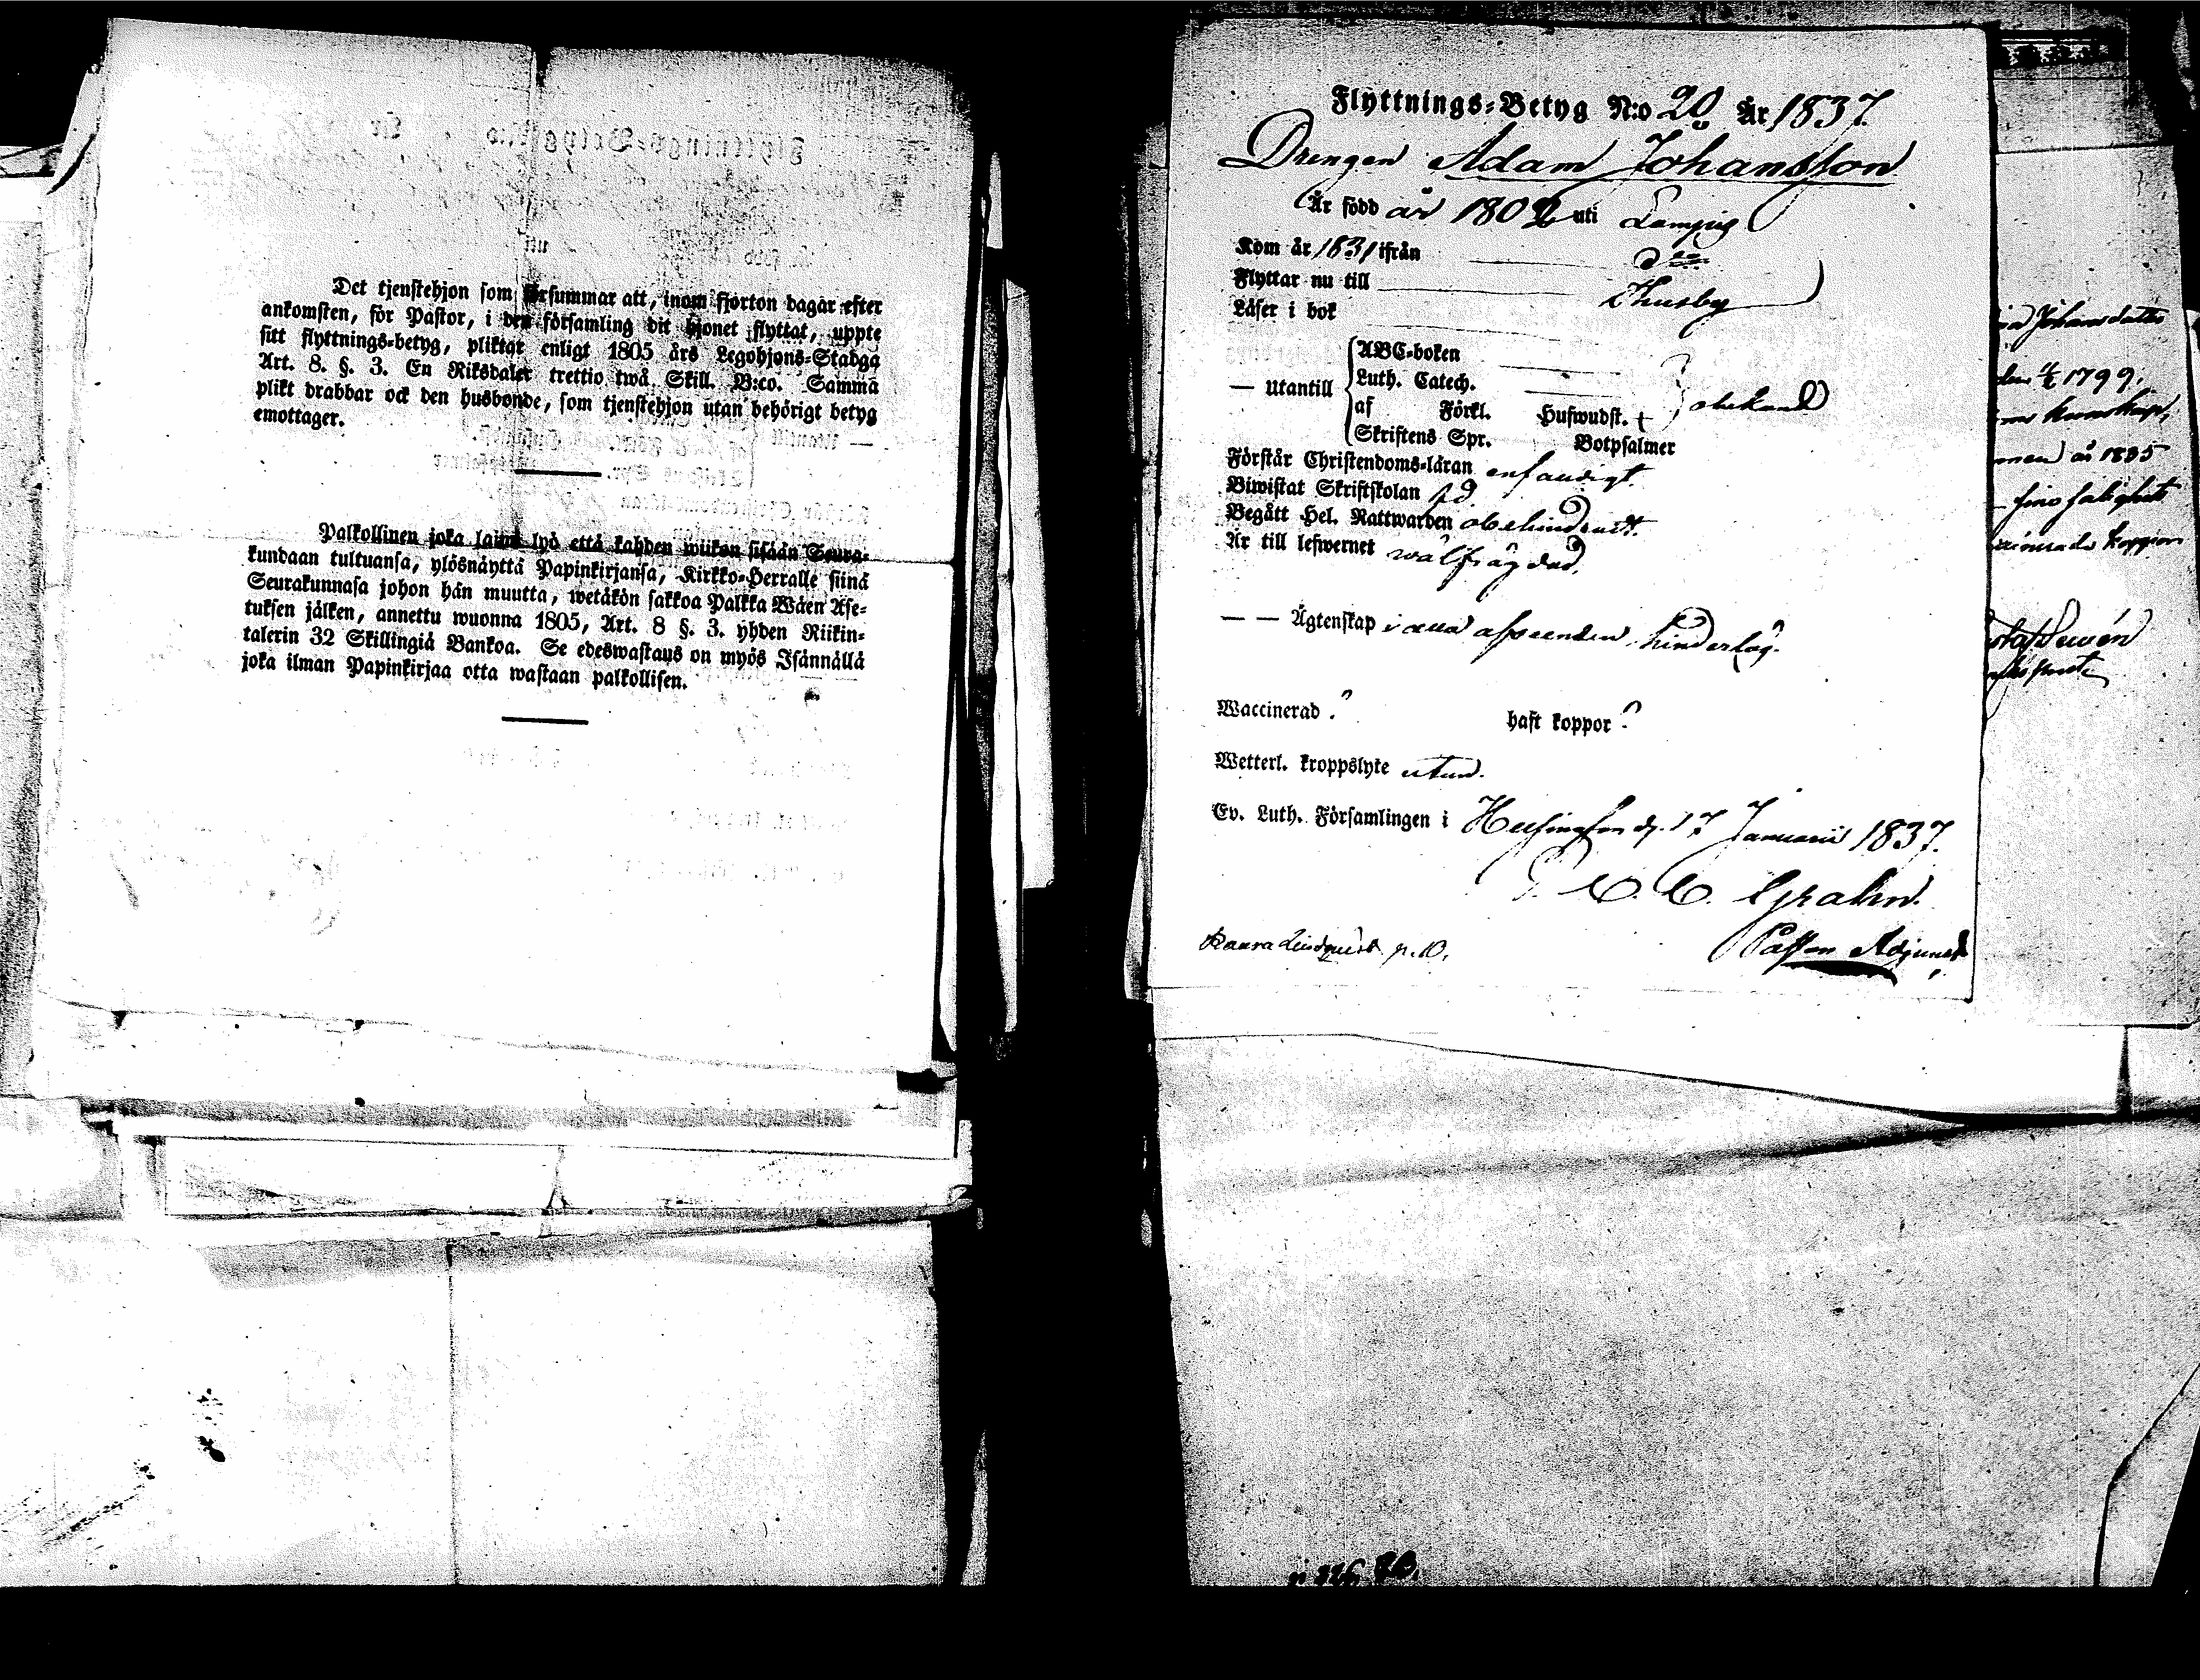 Det tjenstehjon som försummar att, inom fjorton dagar efter
ankomsten, för Pastor, i den församling dit hjonet flyttat, uppte
sitt flyttnings-betyg, pliktar enligt 1805 års Legohjons-Stadga
Art. 8. §. 3. En Riksdaler trettio twå Skill. B:co. Samma
plikt drabbar ock den husbonde, som tjenstehjon utan behörigt betyg
emottager.
Palkollinen joka laimi lyö että kahden wiikon sisään Seura-
kundaan tultuansa, ylösnäyttä Papinkirjansa, Kirkko-Herralle siinä
Seurakunnasa johon hän muutta, wetäkön sakkoa Palkka Wäen Ase-
tuksen jälken, annettu wuonna 1805, Art. 8 §. 3. yhden Riikin-
talerin 32 Skillingiä Bankoa. Se edeswastaus on myös Isännällä
joka ilman Papinkirjaa otta wastaan palkollisen.
Flyttnings-Betyg N:o 20 År 1837.
Drengen Adam Johansson
Är född år 1802 uti Lampis
Kom år 1831 ifrån d:o
Flyttar nu till Thusby
Läser i bok
— Utantill
ABC-boken
Luth. Catech.
af Förkl. Hufwudst. obekand
Skriftens Spr. Botpsalmer
Förstår Christendoms-läran enfaldigt.
Biwistat Skriftskolan
Begått Hel. Nattwarden obehindradt.
Är till lefwernet wälfrägdad.
— — Ägtenskap hinderlög.
Waccinerad? haft koppor?
Wetterl. kroppslyte utan.
Ev. Luth. Församlingen i Helsingfors d. 17 Januarii 1837.
Grahn.
Pastors Adjunct
Lindqvist p. 10.
Johansdotter
1799.
år 1835